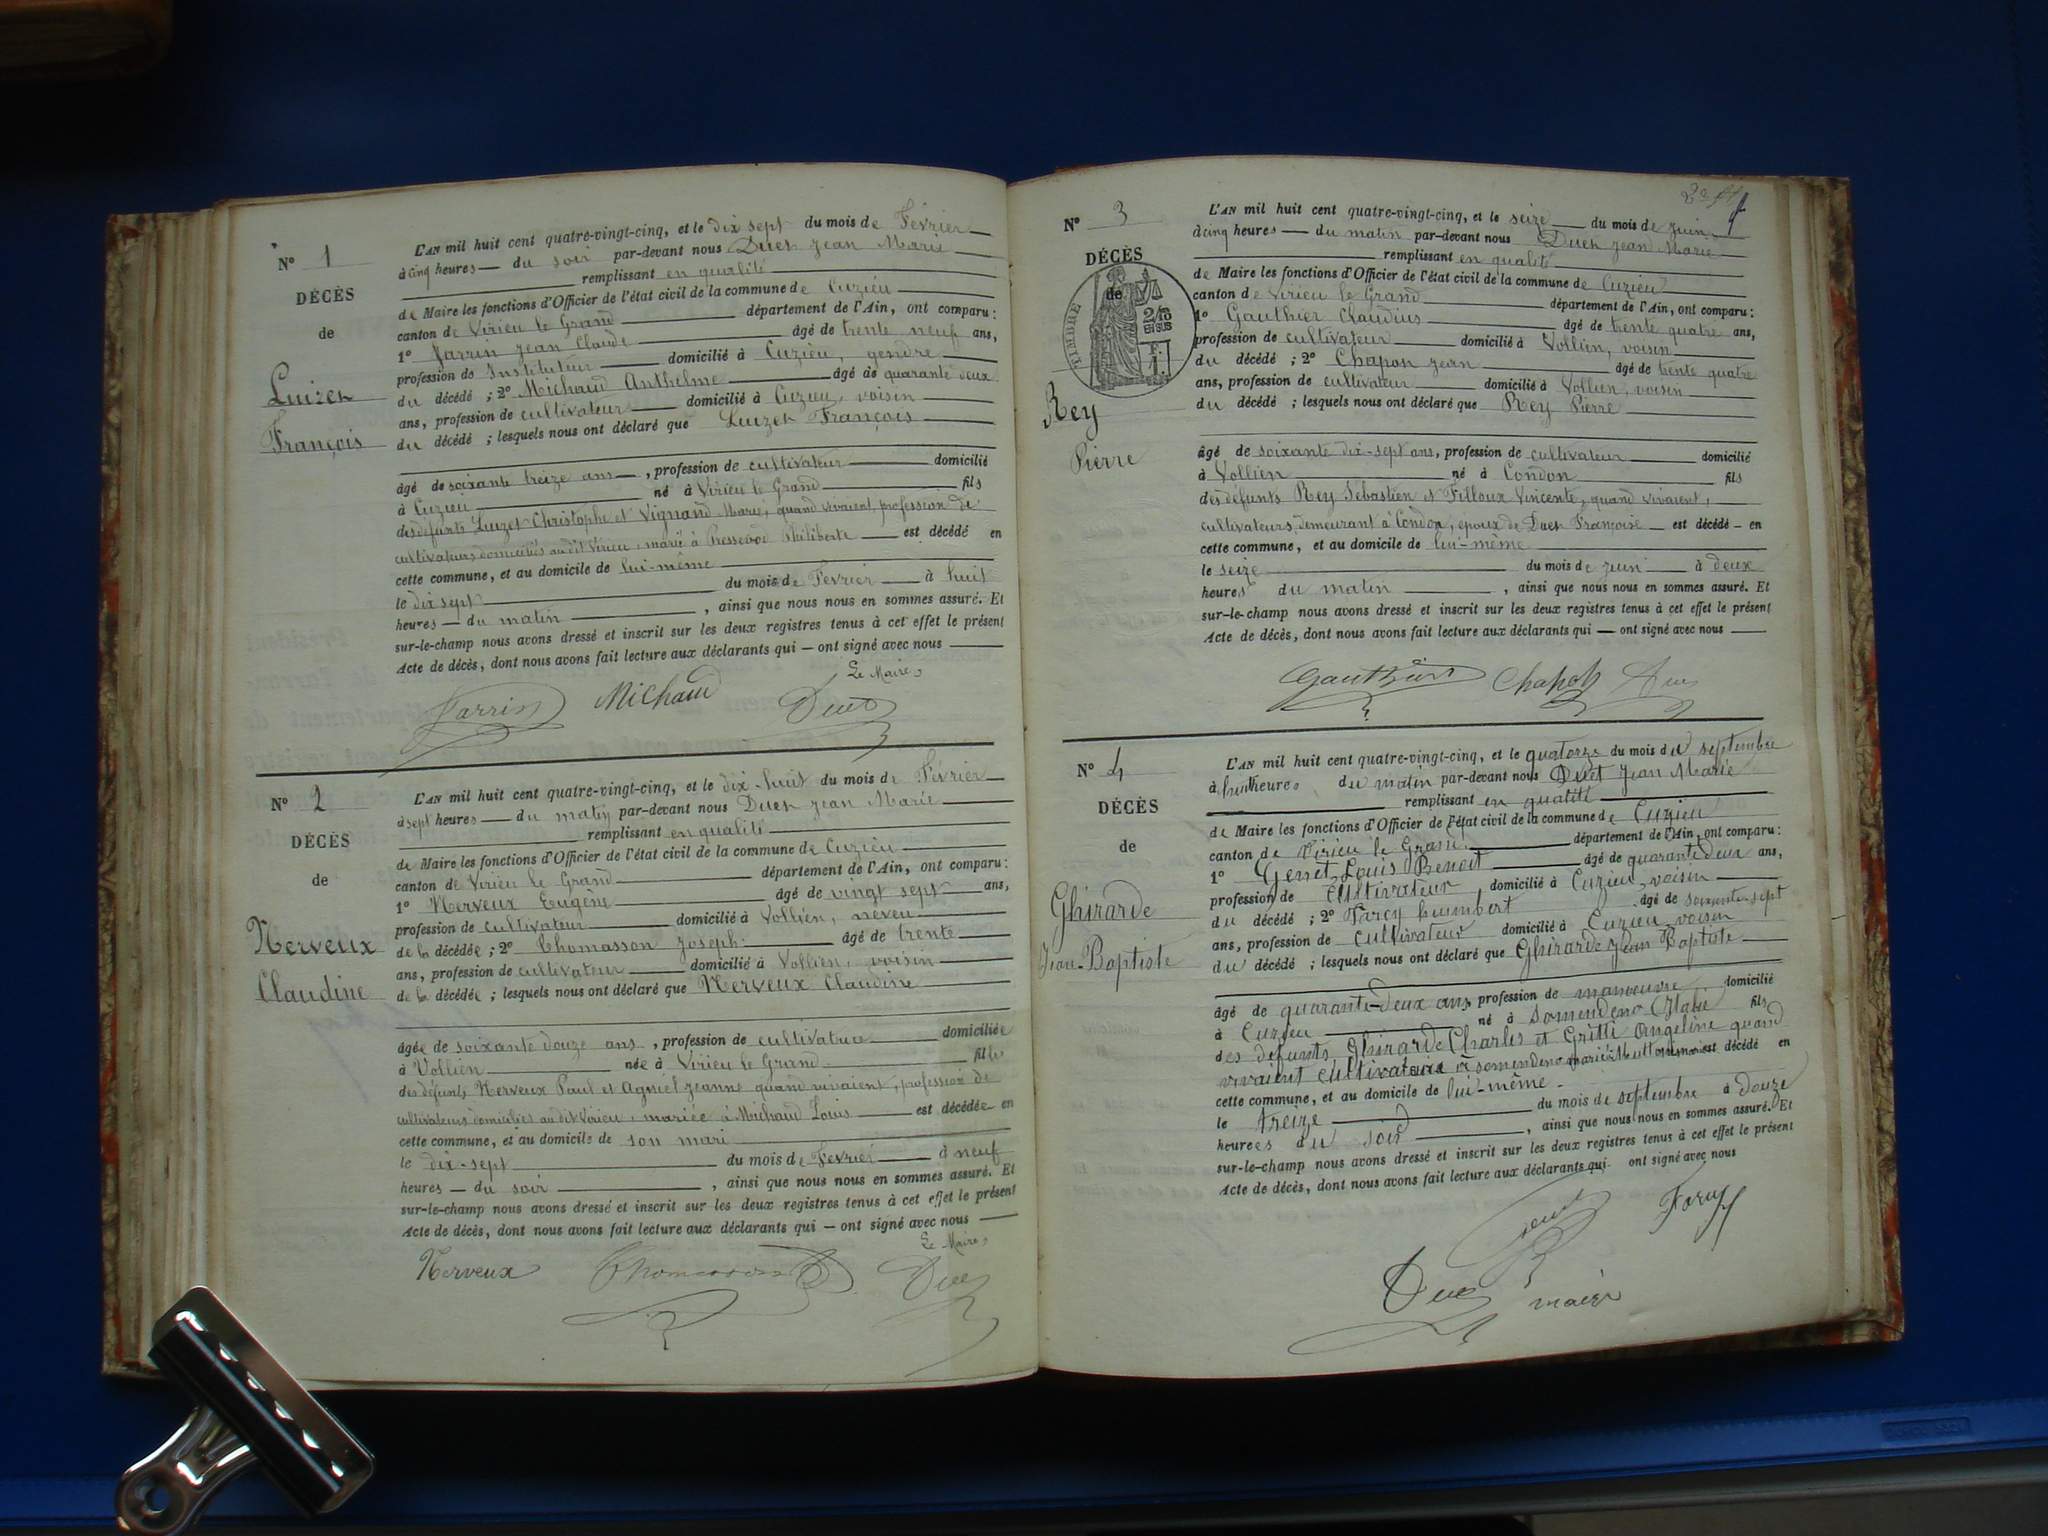 N° 1
DÉCÈS
de
Luizet
François
L'AN mil huit cent quatre-vingt-cinq, et le dix sept du mois de Février
à cinq heures — du soir par-devant nous Duet Jean Marie
remplissant en qualité
de Maire les fonctions d'Officier de l'état civil de la commune de Cuzieu
canton de Virieu le Grand département de l'Ain, ont comparu :
1° Jarrin Jean Claude âgé de trente neuf ans,
profession de Instituteur domicilié à Cuzieu, gendre
du décédé ; 2° Michaud Anthelme âgé de quarante deux
ans, profession de cultivateur domicilié à Cuzieu, voisin
du décédé ; lesquels nous ont déclaré que Luizet François
âgé de soixante treize ans, profession de cultivateur domicilié
à Cuzieu né à Virieu le Grand fils
des défunts Luizet Christophe et Vignand Marie, quand vivaient, profession de
cultivateurs domiciliés au dit Virieu, marié à Philiberte est décédé en
cette commune, et au domicile de lui-même
le dix sept du mois de Février à huit
heures — du matin, ainsi que nous nous en sommes assuré. Et
sur-le-champ nous avons dressé et inscrit sur les deux registres tenus à cet effet le présent
Acte de décès, dont nous avons fait lecture aux déclarants qui — ont signé avec nous
Le Maire
Jarrin Michaud Duet
N° 2
DÉCÈS
de
Nerveux
Claudine
L'AN mil huit cent quatre-vingt-cinq, et le dix-huit du mois de Février
à sept heures — du matin par-devant nous Duet Jean Marie
remplissant en qualité
de Maire les fonctions d'Officier de l'état civil de la commune de Cuzieu
canton de Virieu le Grand département de l'Ain, ont comparu :
1° Nerveux Eugène âgé de vingt sept ans,
profession de cultivateur domicilié à Vollien, neveu
de la décédée ; 2° Thomasson Joseph âgé de trente
ans, profession de cultivateur domicilié à Vollien, voisin
de la décédée ; lesquels nous ont déclaré que Nerveux Claudine
âgée de soixante douze ans, profession de cultivatrice domiciliée
à Vollien née à Virieu le Grand fille
des défunts Nerveux Paul et Agniel Jeanne quand vivaient, profession de
cultivateurs domiciliés au dit Virieu, mariée à Michaud Louis est décédée en
cette commune, et au domicile de son mari
le dix-sept du mois de Fevrier à neuf
heures — du soir, ainsi que nous nous en sommes assuré. Et
sur-le-champ nous avons dressé et inscrit sur les deux registres tenus à cet effet le présent
Acte de décès, dont nous avons fait lecture aux déclarants qui — ont signé avec nous
Le Maire
Nerveux Thomasson Duet
N° 3
DÉCÈS
de
TIMBRE
Rey
Pierre
L'AN mil huit cent quatre-vingt-cinq, et le seize du mois de juin
à cinq heures — du matin par-devant nous Duet Jean Marie
remplissant en qualité
de Maire les fonctions d'Officier de l'état civil de la commune de Cuzieu
canton de Virieu le Grand département de l'Ain, ont comparu :
1° Gauthier Claudius âgé de trente quatre ans,
profession de cultivateur domicilié à Vollien, voisin
du décédé ; 2° Chapon Jean âgé de trente quatre
ans, profession de cultivateur domicilié à Vollien, voisin
du décédé ; lesquels nous ont déclaré que Rey Pierre
âgé de soixante dix-sept ans, profession de cultivateur domicilié
à Vollien né à Condon fils
des défunts Rey Sebastien et Filloux Vincente, quand vivaient,
cultivateurs demeurant à Condon, époux de Duet Françoise — est décédé — en
cette commune, et au domicile de lui-même
le seize du mois de juin à deux
heures du matin, ainsi que nous nous en sommes assuré. Et
sur-le-champ nous avons dressé et inscrit sur les deux registres tenus à cet effet le présent
Acte de décès, dont nous avons fait lecture aux déclarants qui — ont signé avec nous
Gauthier Chapon Duet
N° 4
DÉCÈS
de
Ghirarde
Jean-Baptiste
L'AN mil huit cent quatre-vingt-cinq, et le quatorze du mois de septembre
à huit heures du matin par-devant nous Duet Jean Marie
remplissant en qualité
de Maire les fonctions d'Officier de l'état civil de la commune de Cuzieu
canton de Virieu le Grand département de l'Ain, ont comparu :
1° Genet Louis Benoit âgé de quarante deux ans,
profession de cultivateur domicilié à Cuzieu, voisin
du décédé ; 2° humbert âgé de soixante sept
ans, profession de cultivateur domicilié à Cuzieu voisin
du décédé ; lesquels nous ont déclaré que Ghirarde Jean Baptiste
âgé de quarante-deux ans, profession de manœuvre domicilié
à Cuzieu né à Somendeno Italie fils
des défunts Ghirarde Charles et Gritti Angeline quand
vivaient cultivateurs à somendeno est décédé en
cette commune, et au domicile de lui-même
le treize du mois de septembre à douze
heures du soir, ainsi que nous nous en sommes assuré. Et
sur-le-champ nous avons dressé et inscrit sur les deux registres tenus à cet effet le présent
Acte de décès, dont nous avons fait lecture aux déclarants qui ont signé avec nous
Duet maire